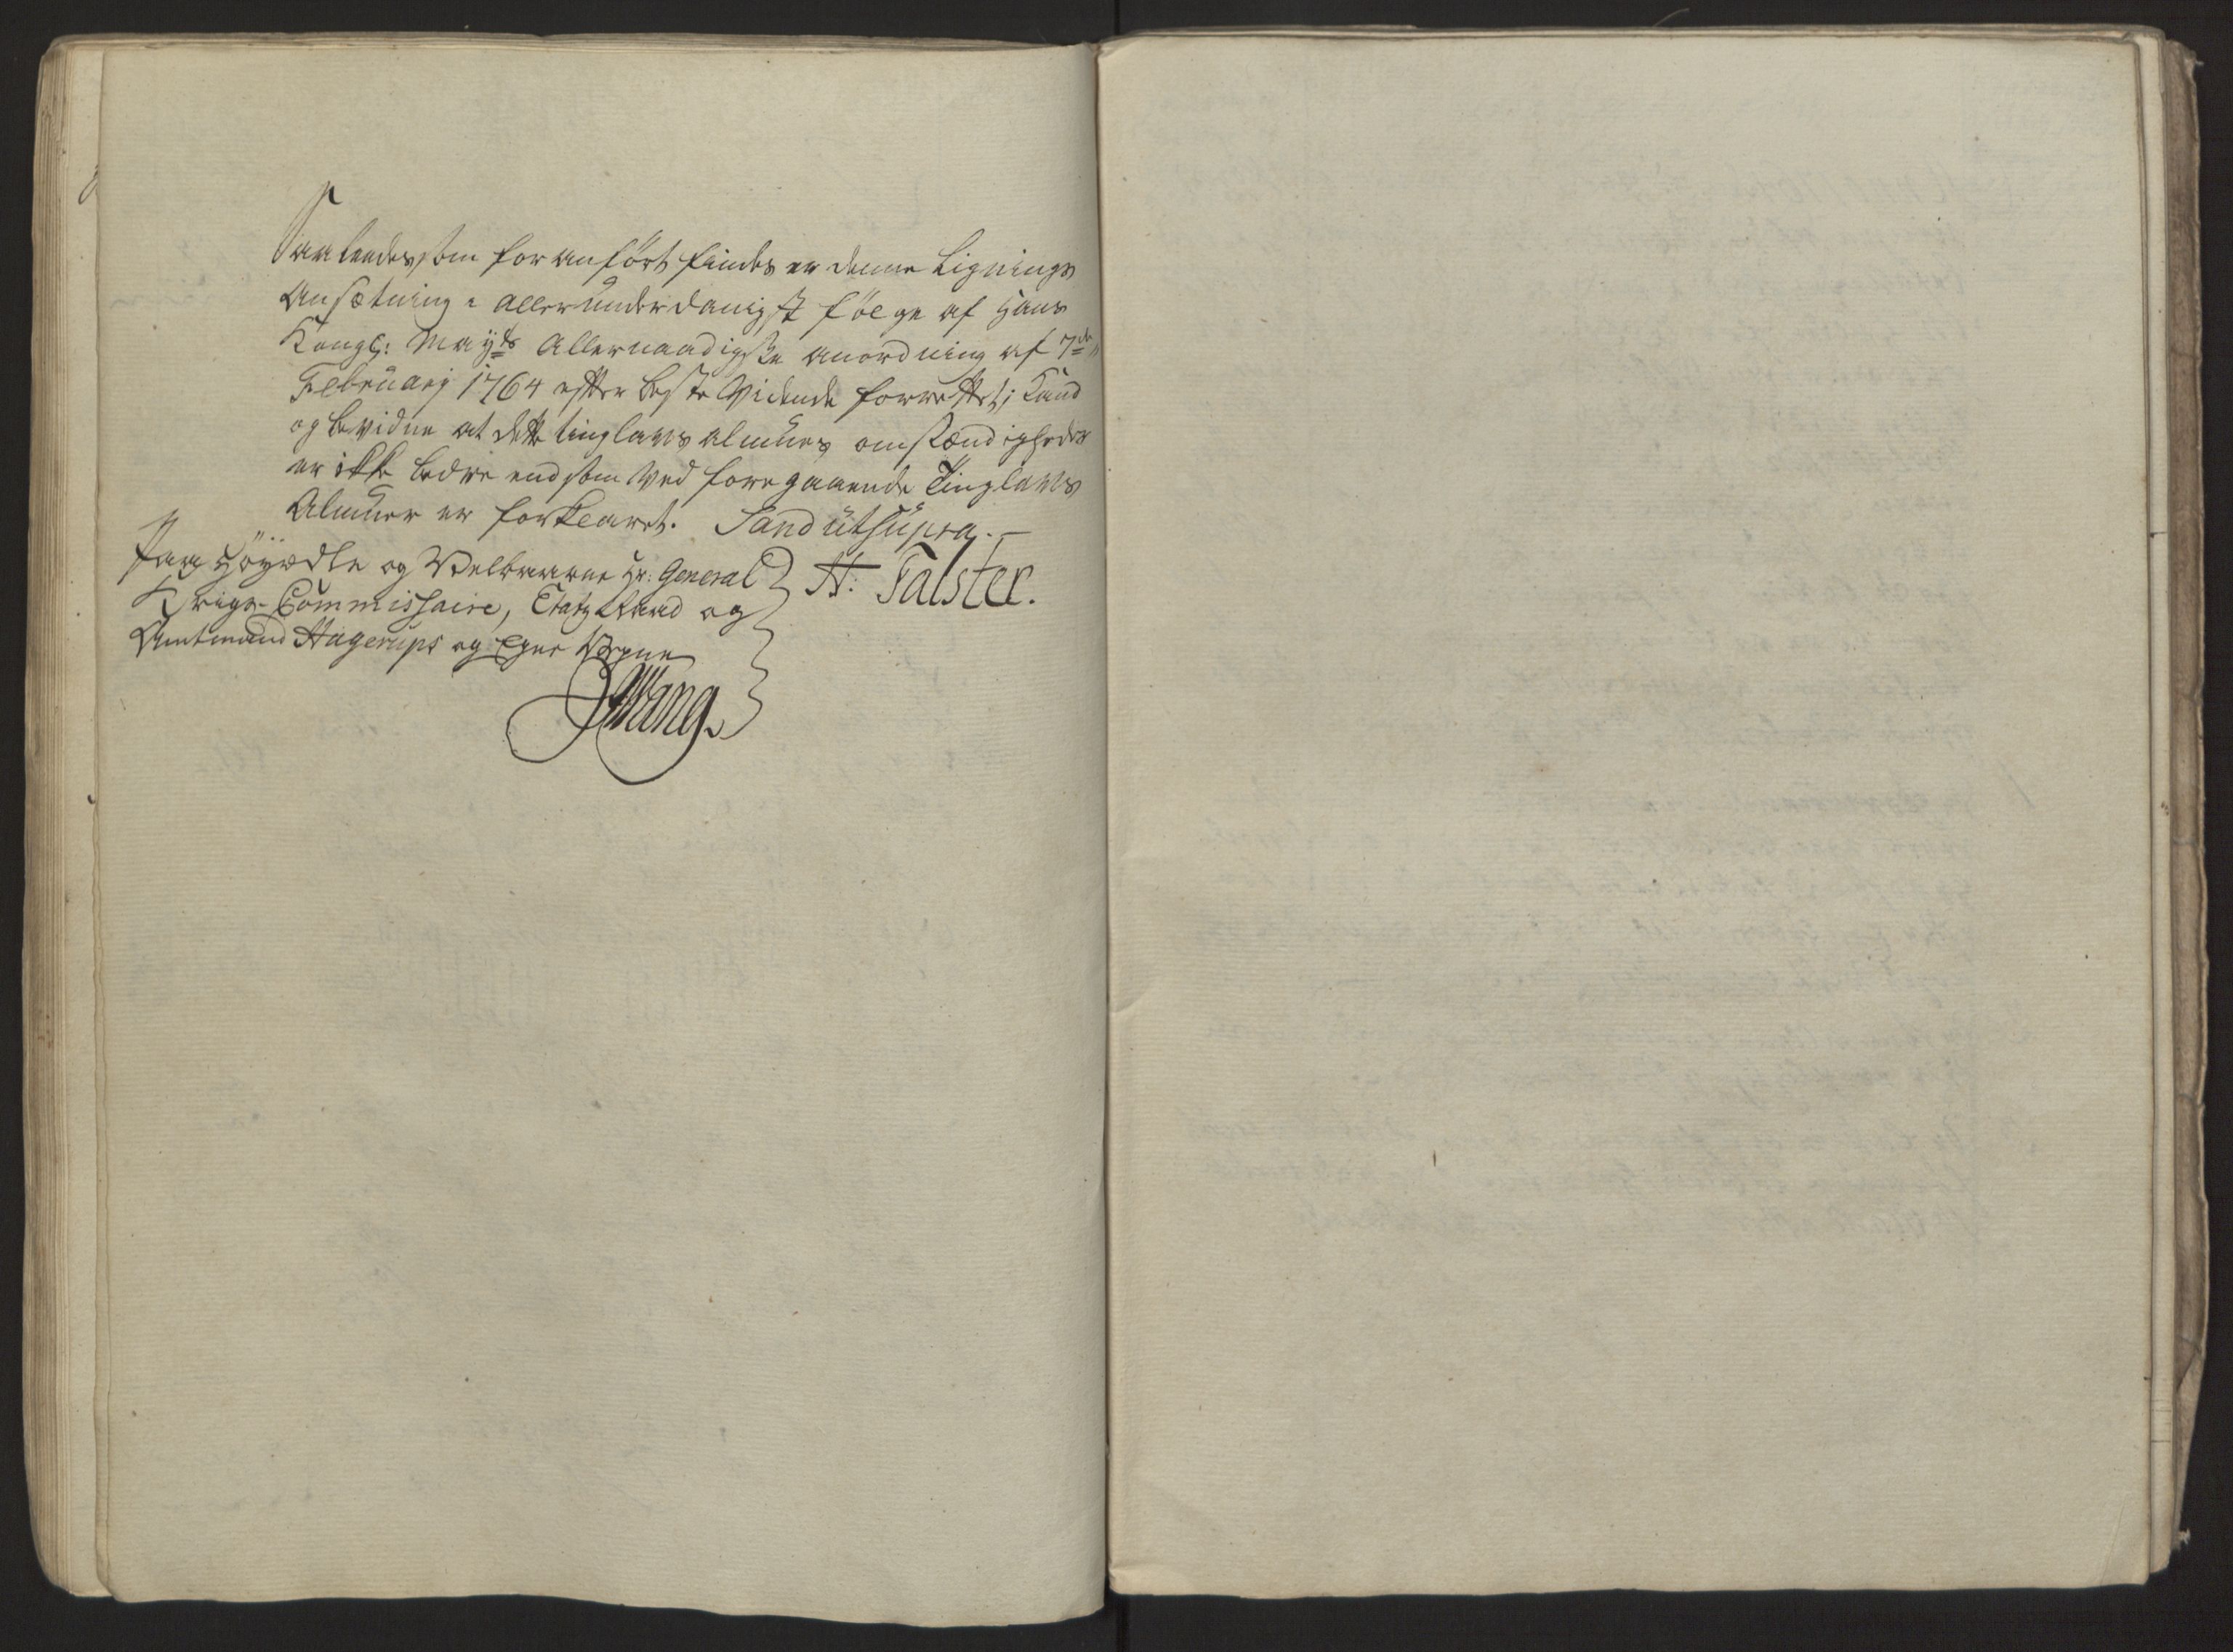 Saaleedes som foranført findes er denne Lignings
Ansætning i allerunderdanigst følge af Hans
Kongl: May:ts Allernaadigste anordning af 7de
Februarj 1764 efter beste Vidende forrettet; Kand
og bevidne at dette tinglavs almues omstændigheder
er ikke bedre end som ved foregaaende Tinglavs
Almuer er forklaret. Sand ut supra. —
Paa Høyædle og Velbaarne Hr: General
Krigs-Commissaire, Etatz Raad og
Amtmand Hagerups og Egne Vegne
A: Falster.
Wang.